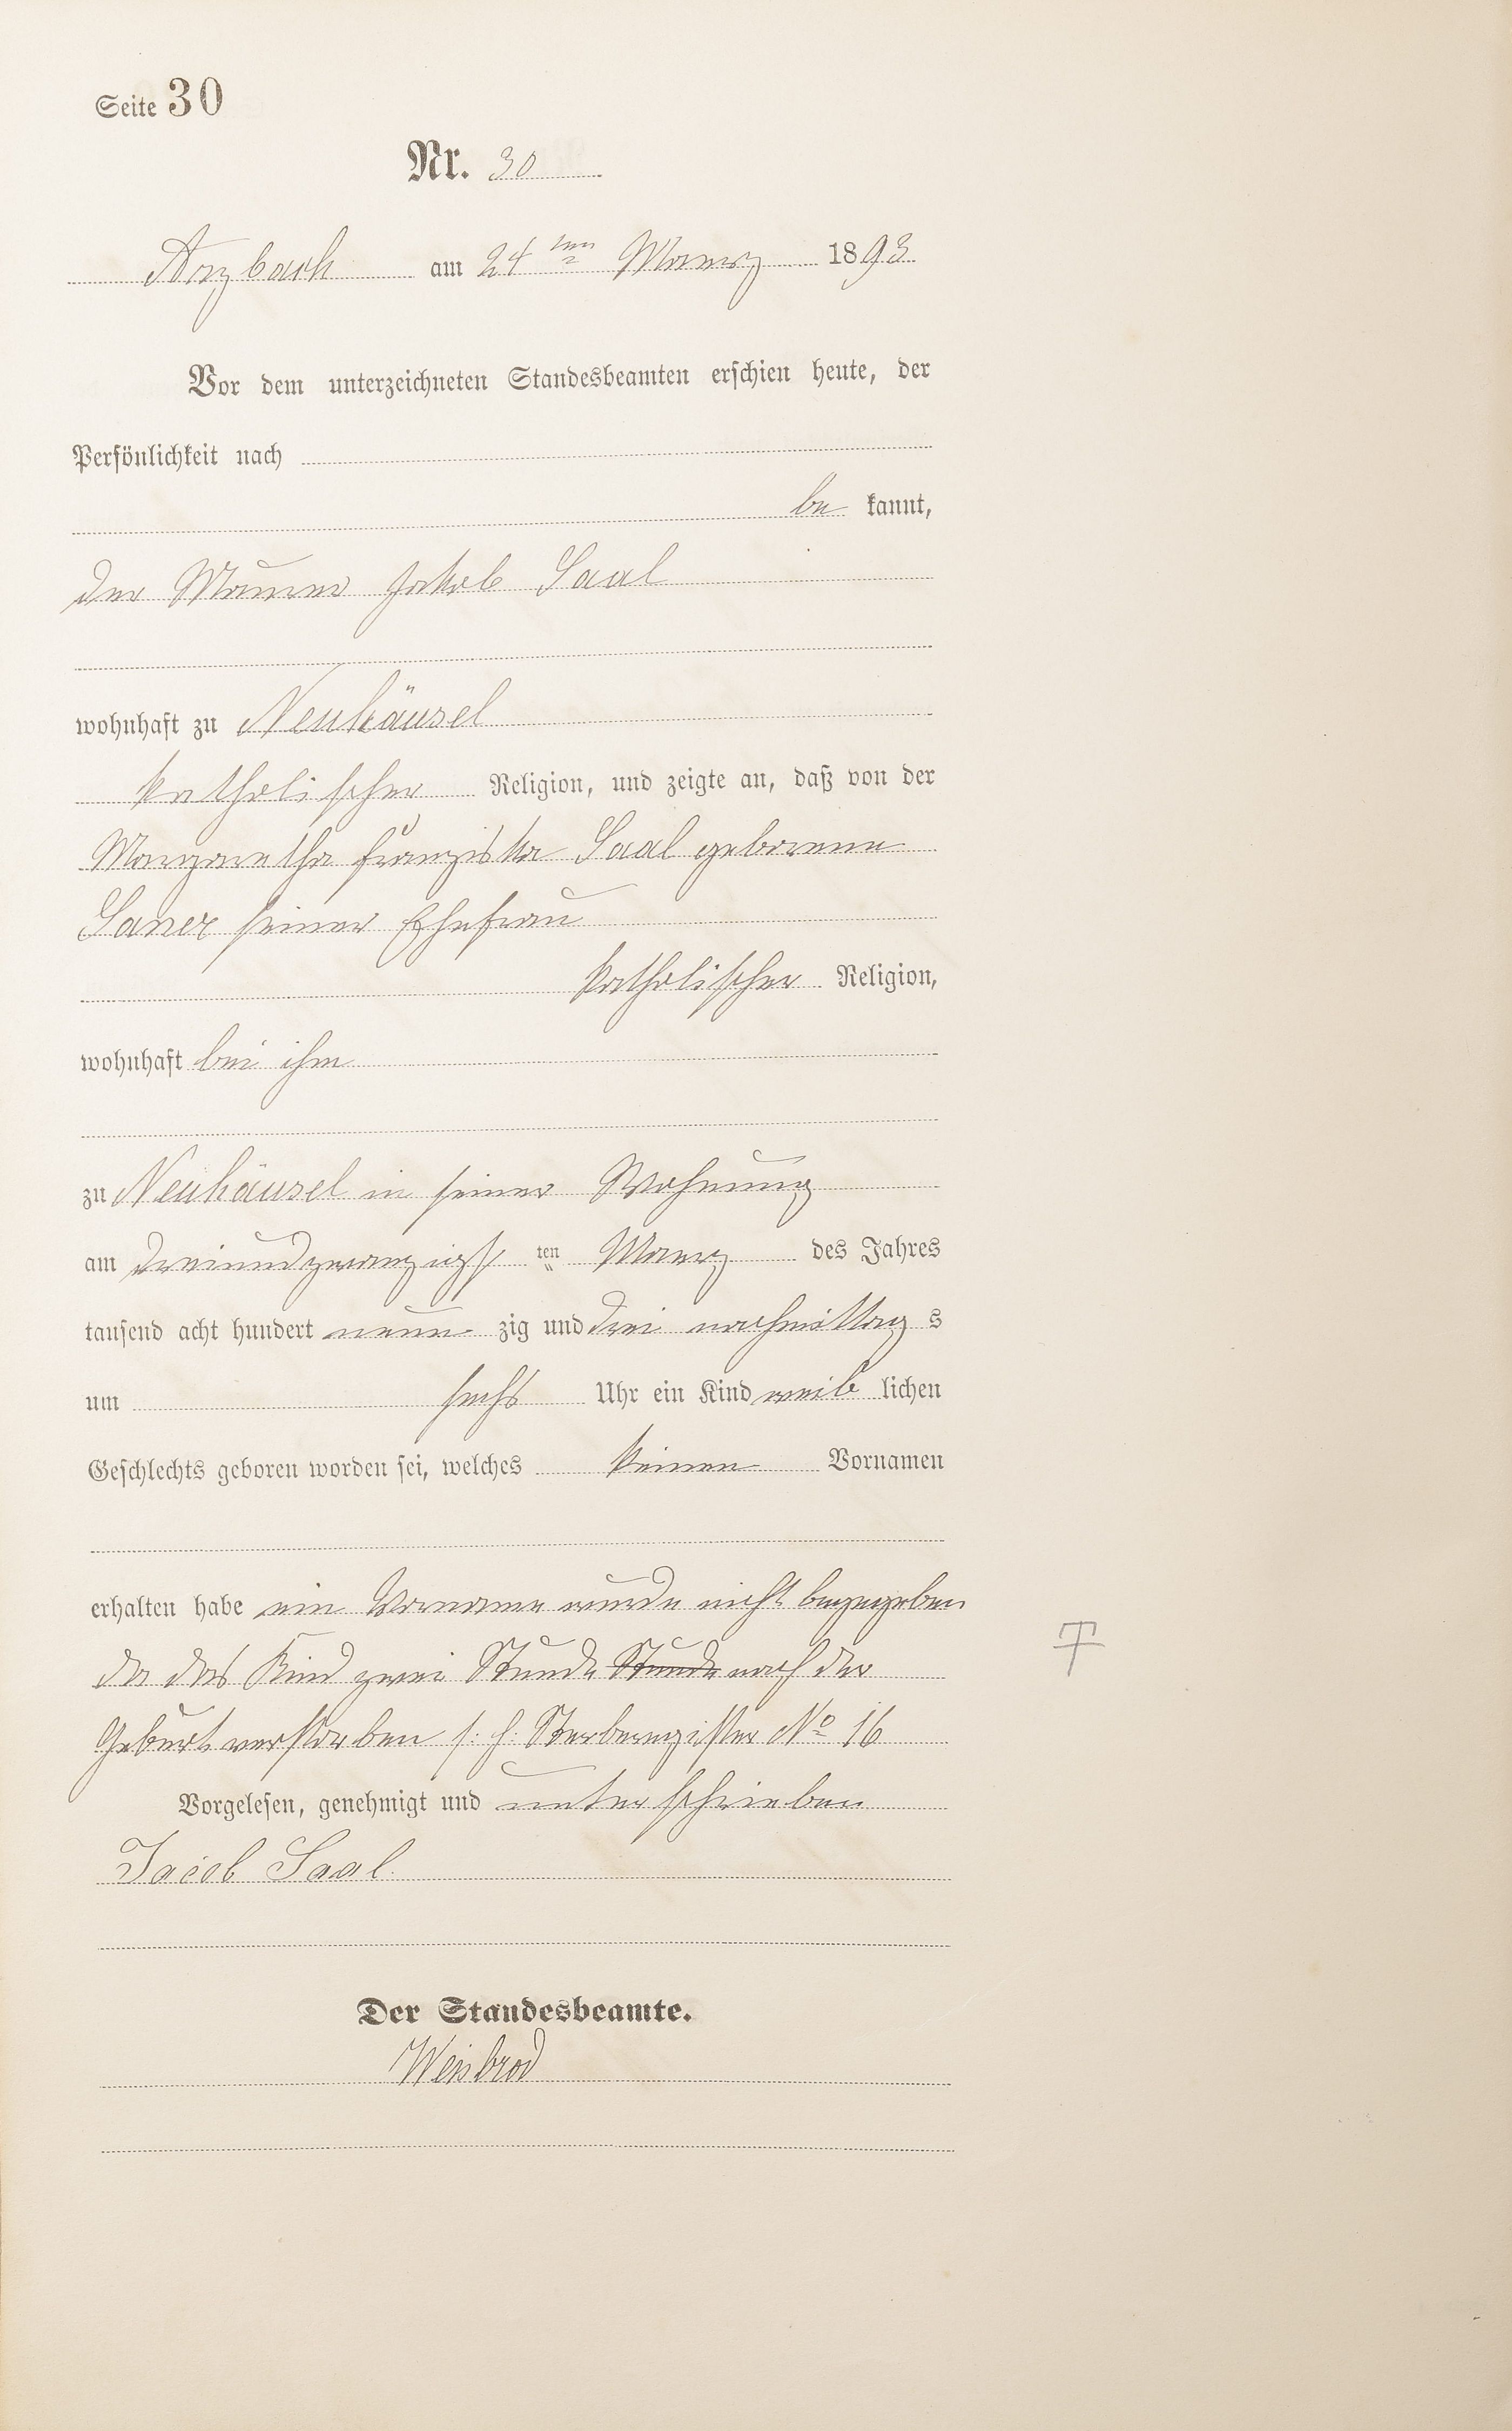 Seite 30
Nr. 30
Arzbach am 24ten Maerz 1893
Vor dem unterzeichneten Standesbeamten erschien heute, der
Persönlichkeit nach
be kannt,
der Maurer Jakob Saal
wohnhaft zu Neuhäusel
katholischer Religion, und zeigte an, daß von der
Margaretha Franziska Saal geborene
seiner Ehefrau
katholischer Religion,
wohnhaft bei ihm
zu Neuhäusel in seiner Wohnung
am dreiundzwanzigst ten Maerz des Jahres
tausend acht hundert neun zig und drei nachmittag s
um sechs Uhr ein Kind weib lichen
Geschlechts geboren worden sei, welches keinen Vornamen
erhalten habe ein Vorname wurde nicht
da das Kind zwei Stunde Stunde nach der
Geburt verstorben s. h. Sterberegister No 16
Vorgelesen, genehmigt und unterschrieben
Jacob Saal
Der Standesbeamte.
Weisbrod